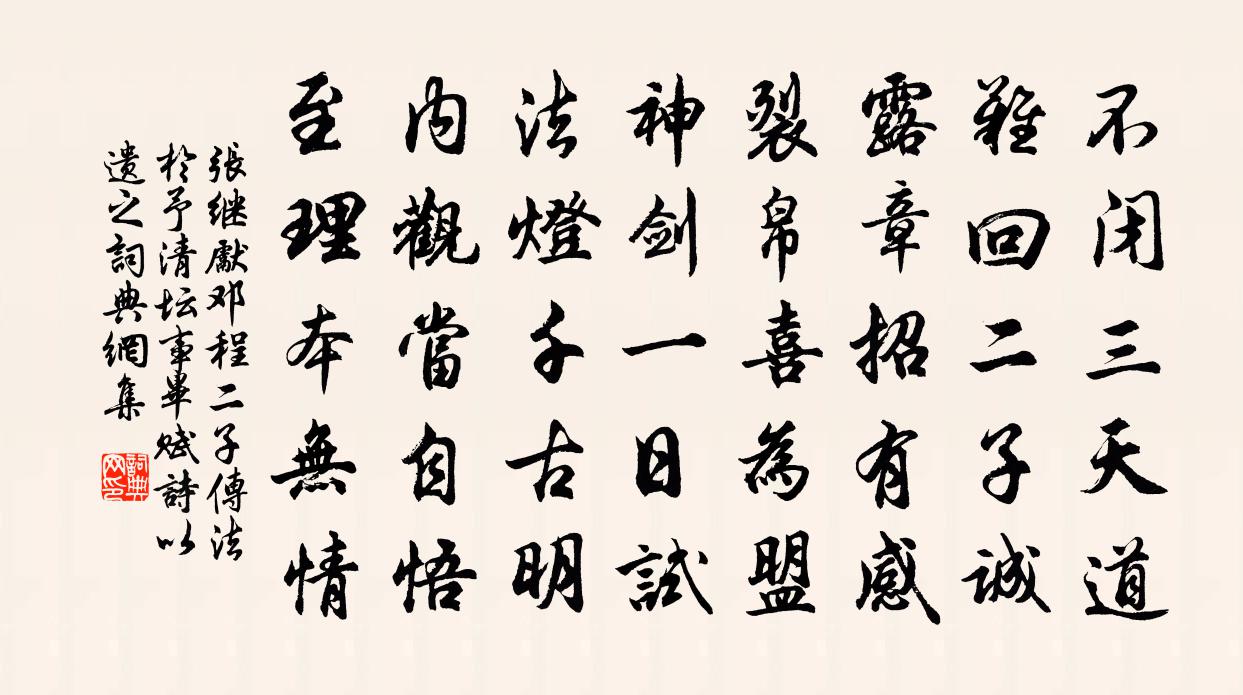 不闭三天道
難回二子诚
露章招有感
裂帛喜為盟
神剑一日試
法燈千古明
内觀當自悟
至理本無情
張继獻邓程二子傳法
於予清坛事畢赋詩以
遺之詞典網集
詞典网印